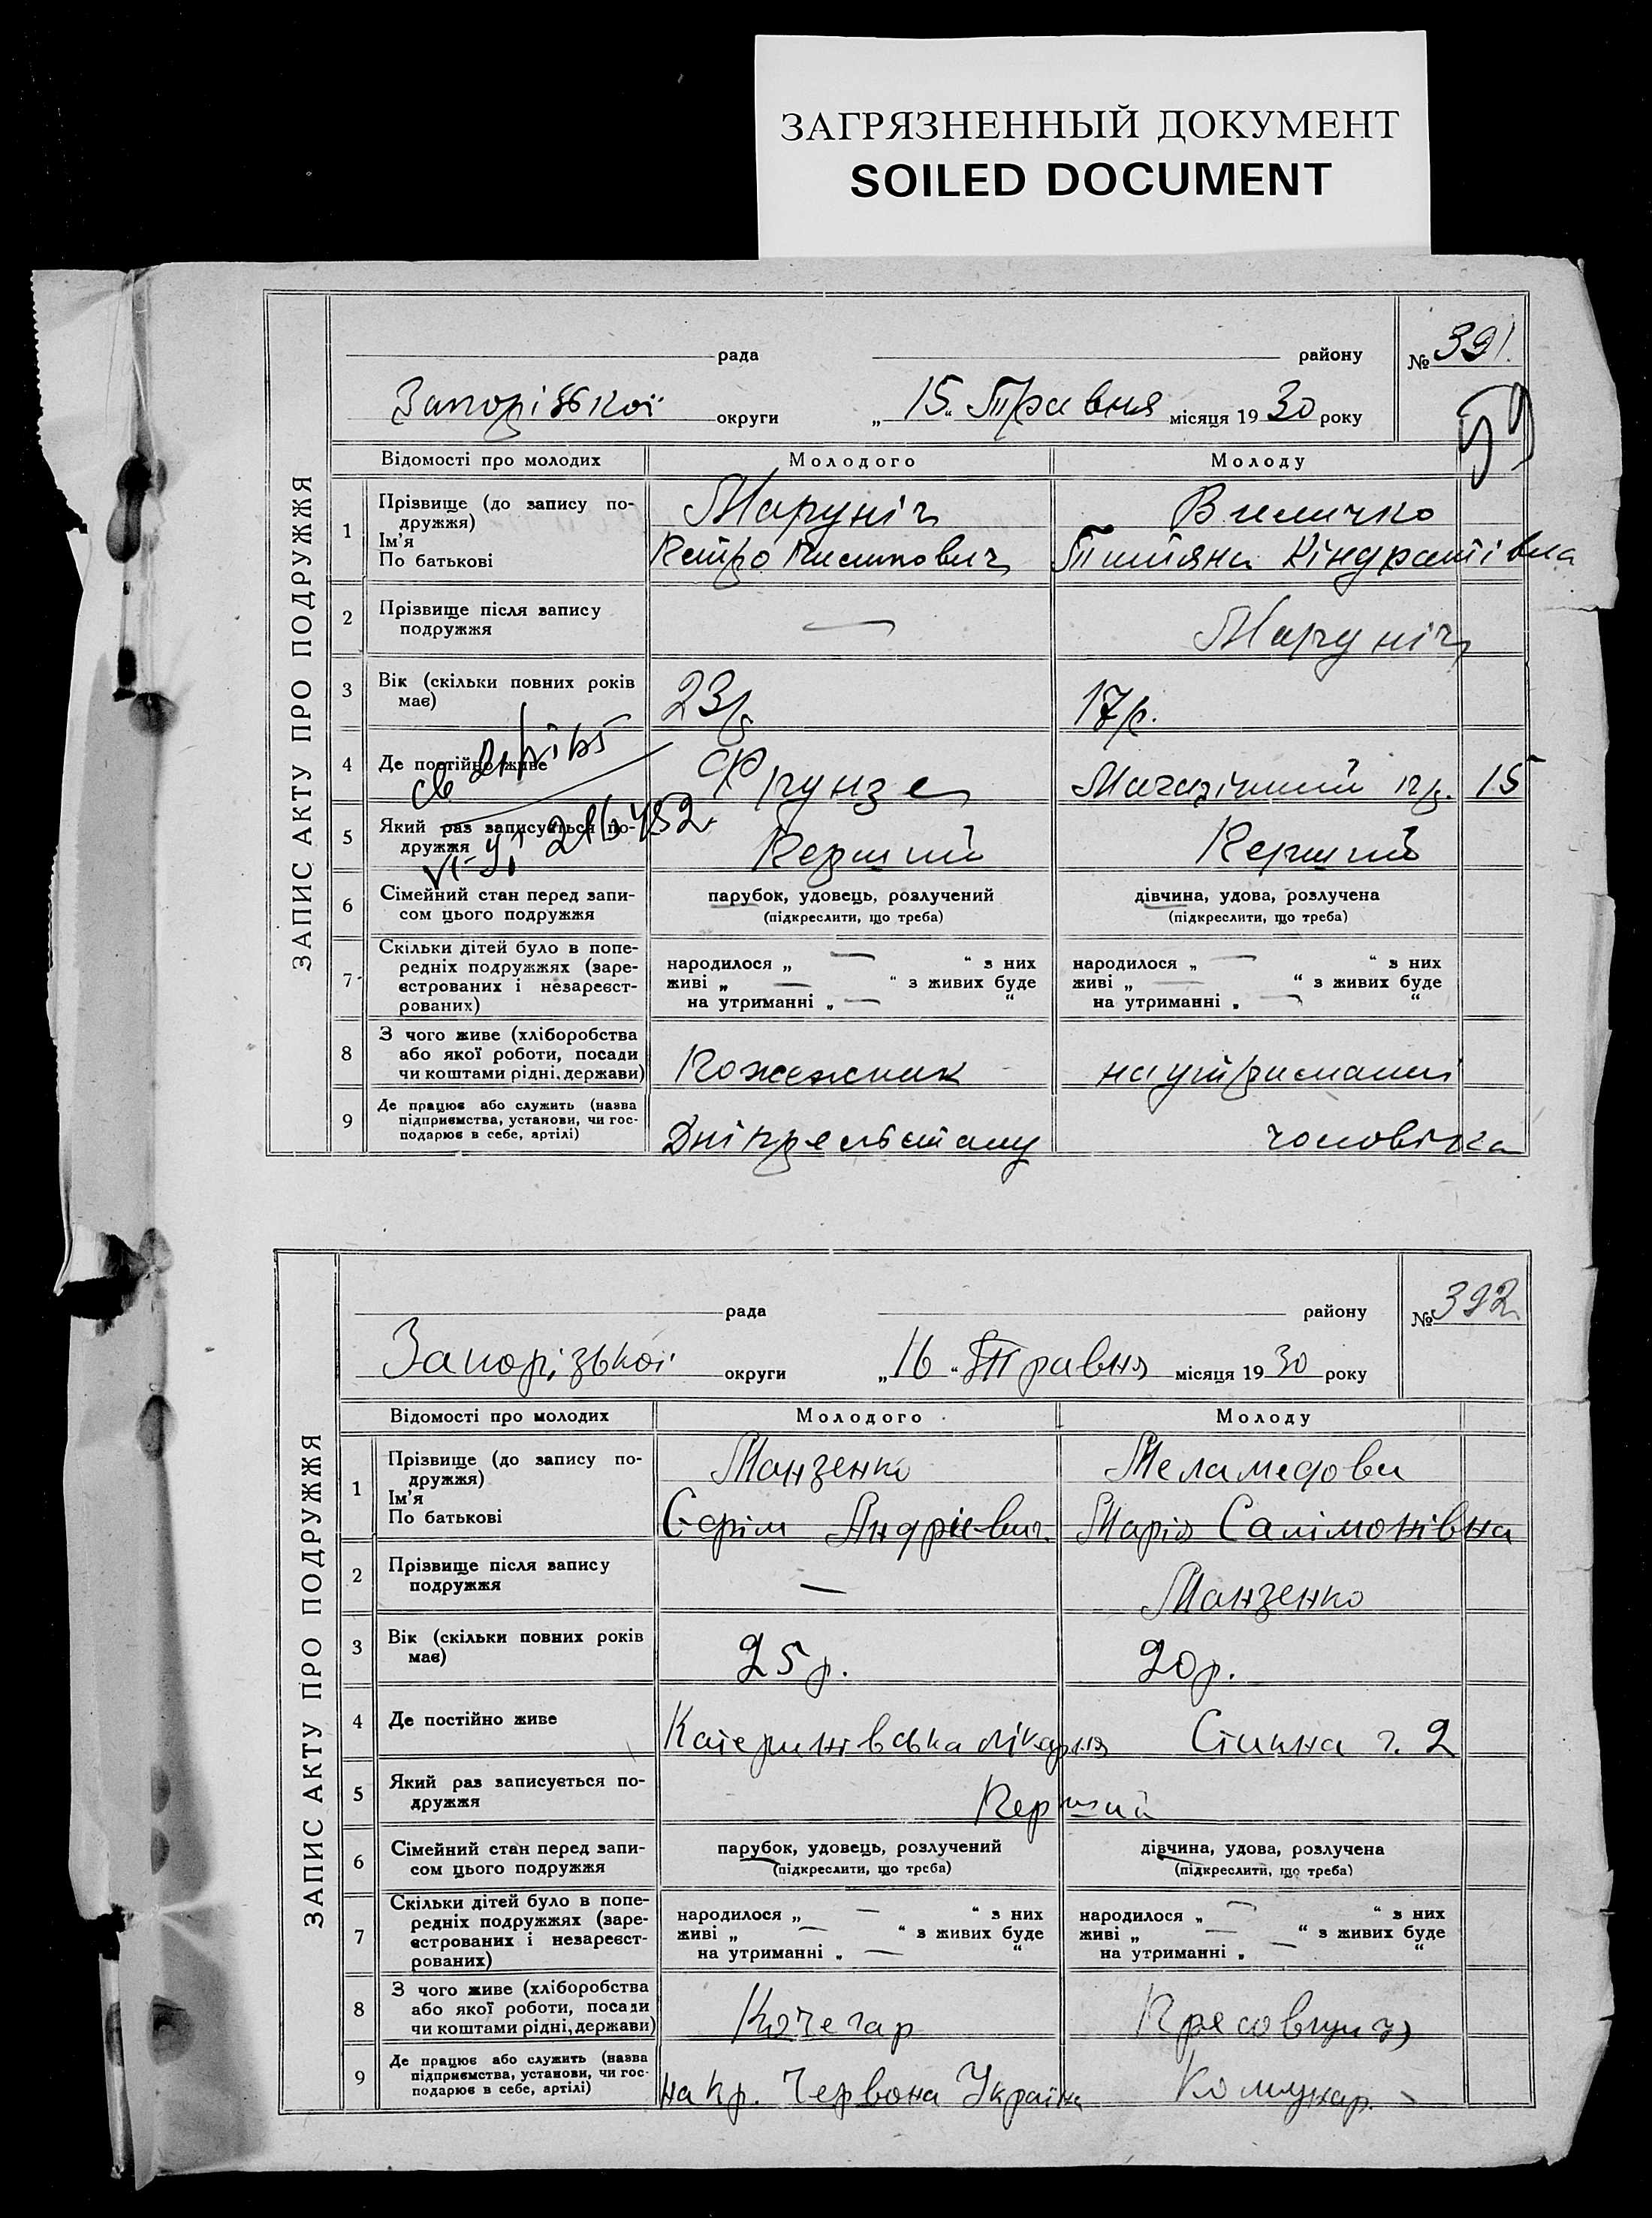 ЗАГРЯЗНЕННЫЙ ДОКУМЕНТ
SOILED DOCUMENT
ЗАПИС АКТУ ПРО ПОДРУЖЖЯ
рада району № 391.
Запорізької округи „15“ Травня місяця 1930 року
59
Відомості про молодих Молодого Молоду
1 Прізвище (до запису по-
дружжя)
Ім'я
По батькові
Маруніч
Петро
Величко
Тетяна Кіндратівна
2 Прізвище після запису
подружжя
— Маруніч
3 Вік (скільки повних років
має)
23р. 17р.
4 Де постійно живе
Фрунзе 15
5 Який раз записується по-
дружжя
Перший Перший
6 Сімейний стан перед запи-
сом цього подружжя
парубок, удовець, розлучений
(підкреслити, що треба)
дівчина, удова, розлучена
(підкреслити, що треба)
7 Скільки дітей було в попе-
редніх подружжях (заре-
єстрованих і незареєст-
рованих)
народилося „ — “ з них
живі „ — “ з живих буде
на утриманні „ — “
народилося „ — “ з них
живі „ — “ з живих буде
на утриманні „ — “
8 З чого живе (хліборобства
або якої роботи, посади
чи коштами рідні, держави)
на утриманні
9 Де працює або служить (назва
підприємства, установи, чи гос-
подарює в себе, артілі)
чоловіка
ЗАПИС АКТУ ПРО ПОДРУЖЖЯ
рада району № 392
Запорізької округи „16“ Травня місяця 1930 року
Відомості про молодих Молодого Молоду
1 Прізвище (до запису по-
дружжя)
Ім'я
По батькові
Манзенко
Андрієвич
Меламедова
Марія Салімонівна
2 Прізвище після запису
подружжя
— Манзенко
3 Вік (скільки повних років
має)
25р. 20р.
4 Де постійно живе
Катеринівська лікарня 2
5 Який раз записується по-
дружжя
Перший
6 Сімейний стан перед запи-
сом цього подружжя
парубок, удовець, розлучений
(підкреслити, що треба)
дівчина, удова, розлучена
(підкреслити, що треба)
7 Скільки дітей було в попе-
редніх подружжях (заре-
єстрованих і незареєст-
рованих)
народилося „ — “ з них
живі „ — “ з живих буде
на утриманні „ — “
народилося „ — “ з них
живі „ — “ з живих буде
на утриманні „ — “
8 З чого живе (хліборобства
або якої роботи, посади
чи коштами рідні, держави)
Кочегар
9 Де працює або служить (назва
підприємства, установи, чи гос-
подарює в себе, артілі)
на пр. Червона Україна Комунар.